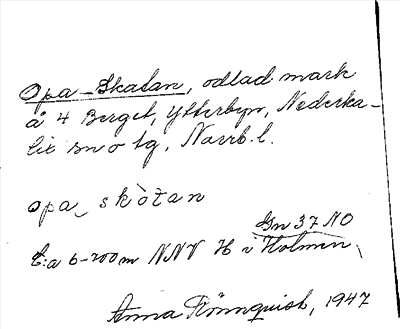 Opa-Skatan, odlad mark
å 4 Berget, Ytterbyn, Nederka-
lix sn o tg, Norrb. l.
opa_skòtan
Gn 37 NO
E:a 6-700 m NNV H i Holmen
Anna Rönnquist, 1947